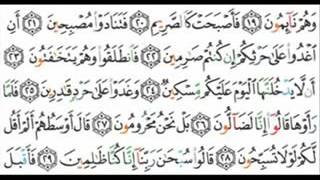 وَهُمْ نَآئِمُونَ ١٩ فَأَصْبَحَتْ كَٱلصَّرِيمِ ٢٠ فَتَنَادَوْا۟ مُصْبِحِينَ ٢١ أَنِ
ٱغْدُوا۟ عَلَىٰ حَرْثِكُمْ إِن كُنتُمْ صَـٰرِمِينَ ٢٢ فَٱنطَلَقُوا۟ وَهُمْ يَتَخَـٰفَتُونَ ٢٣
أَن لَّا يَدْخُلَنَّهَا ٱلْيَوْمَ عَلَيْكُم مِّسْكِينٌ ٢٤ وَغَدَوْا۟ عَلَىٰ حَرْدٍ قَـٰدِرِينَ ٢٥ فَلَمَّا
رَأَوْهَا قَالُوٓا۟ إِنَّا لَضَآلُّونَ ٢٦ بَلْ نَحْنُ مَحْرُومُونَ ٢٧ قَالَ أَوْسَطُهُمْ أَلَمْ أَقُل
لَّكُمْ لَوْلَا تُسَبِّحُونَ ٢٨ قَالُوا۟ سُبْحَـٰنَ رَبِّنَآ إِنَّا كُنَّا ظَـٰلِمِينَ ٢٩ فَأَقْبَلَ